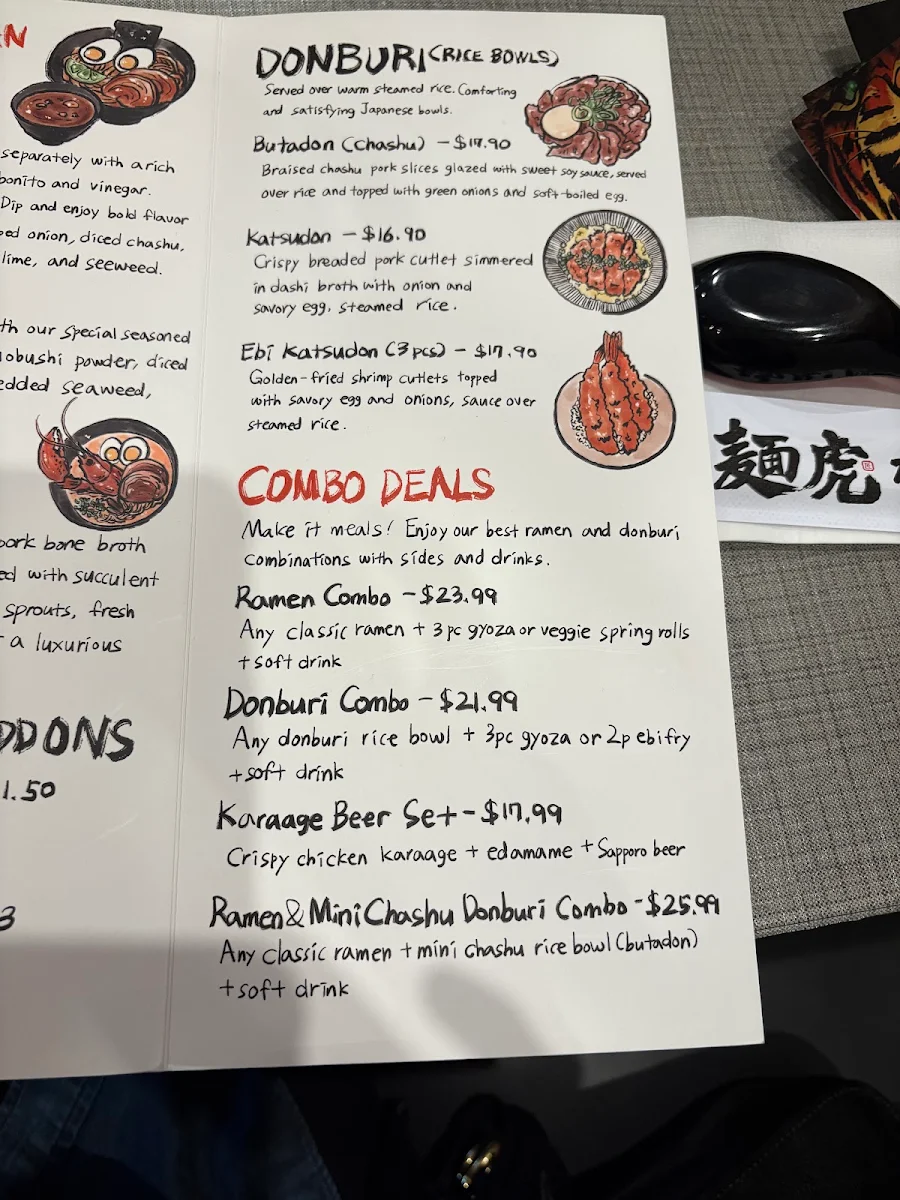 N
separately with a rich
bonito and vinegar.
Dip and enjoy bold flavor
ped onion, diced chashu,
lime, and seeweed.
th our special seasoned
obushi powder, diced
edded seaweed,
pork bone broth
ed with succulent
sprouts, fresh
a luxurious
DDONS
1.50
3
DONBURI (RICE BOWLS)
Served over warm steamed rice. Comforting
and satisfying Japanese bowls.
Butadon (Chashu) - $17.90
Braised chashu pork slices glazed with sweet soy sauce, served
over rice and topped with green onions and soft-boiled egg.
Katsudon - $16.90
Crispy breaded pork cutlet simmered
in dashi broth with onion and
savory egg, steamed rice.
Ebi Katsudon (3pcs) - $17.90
Golden-fried shrimp cutlets topped
with savory egg and onions, sauce over
steamed rice.
COMBO DEALS
Make it meals! Enjoy our best ramen and donburi
combinations with sides and drinks.
Ramen Combo - $23.99
Any classic ramen + 3pc gyoza or veggie spring rolls
+ soft drink
Donburi Combo - $21.99
Any donburi rice bowl + 3pc gyoza or 2p ebi fry
+ soft drink
Karaage Beer Set - $17.99
Crispy chicken karaage + edamame + Sapporo beer
Ramen & Mini Chashu Donburi Combo - $25.99
Any classic ramen + mini chashu rice bowl (butadon)
+ soft drink
麺虎